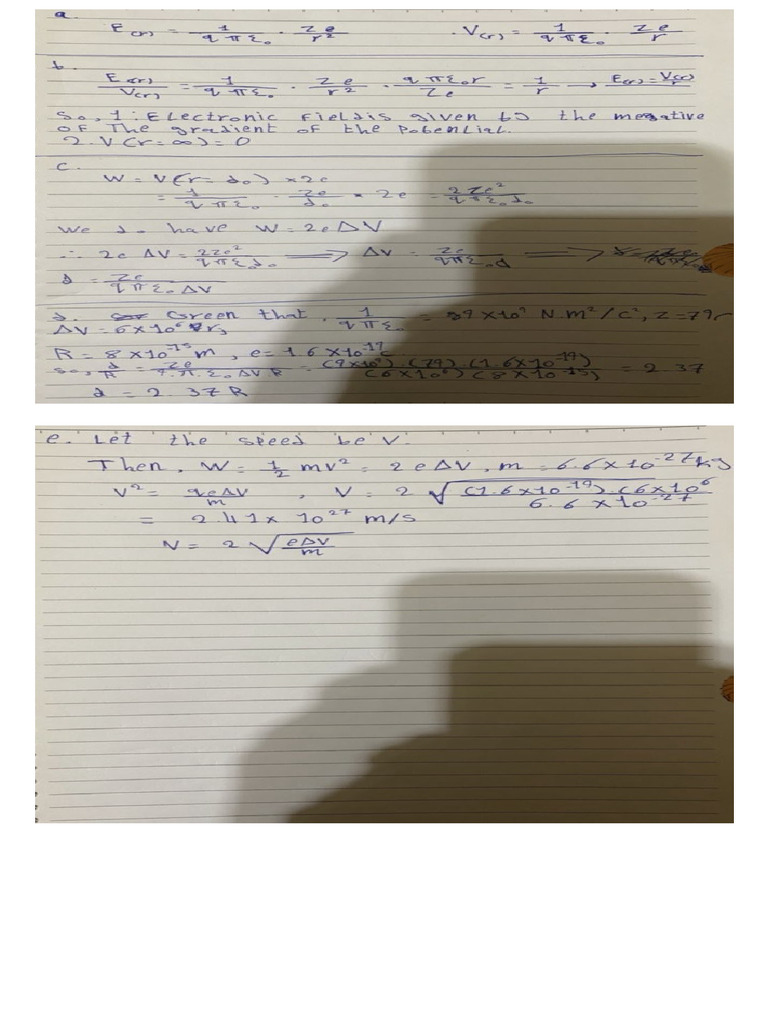 a.
E(r) = 1/4πε₀ · Ze/r² . V(r) = 1/4πε₀ · Ze/r
b.
E(r)/V(r) = 1/4πε₀ · Ze/r² · 4πε₀r/Ze = 1/r → E(r) = V(r)/r
So, 1: Electronic Field is given by the megative
of The gradient of the Potential.
2. V(r=∞) = 0
c.
W = V(r=d₀) × 2e
= 1/4πε₀ · Ze/d₀ × 2e = 2Ze²/4πε₀d₀
We do have W = 2eΔV
∴ 2eΔV = 2Ze²/4πε₀d₀ ⟹ ΔV = Ze/4πε₀d ⟹
d = Ze/4πε₀ΔV
d. Green that . 1/4πε₀ = 89×10⁹ N.m²/c², Z=79,
ΔV = 6×10⁶
R = 8×10⁻¹⁵ m , e = 1.6×10⁻¹⁹ c
So, d/R = Ze/4.π.ε₀ΔV R = (9×10⁹).(79).(1.6×10⁻¹⁹)/(6×10⁶)(8×10⁻¹⁵) = 2.37
d = 2.37R
e. Let the speed be V.
Then, W = 1/2 mv² = 2eΔV , m = 6.6×10⁻²⁷ kg
V² = 4eΔV/m , V = 2√((1.6×10⁻¹⁹).(6×10⁶/6.6×10⁻²⁷
= 2.41× 10²⁷ m/s
V = 2√(eΔV/m)